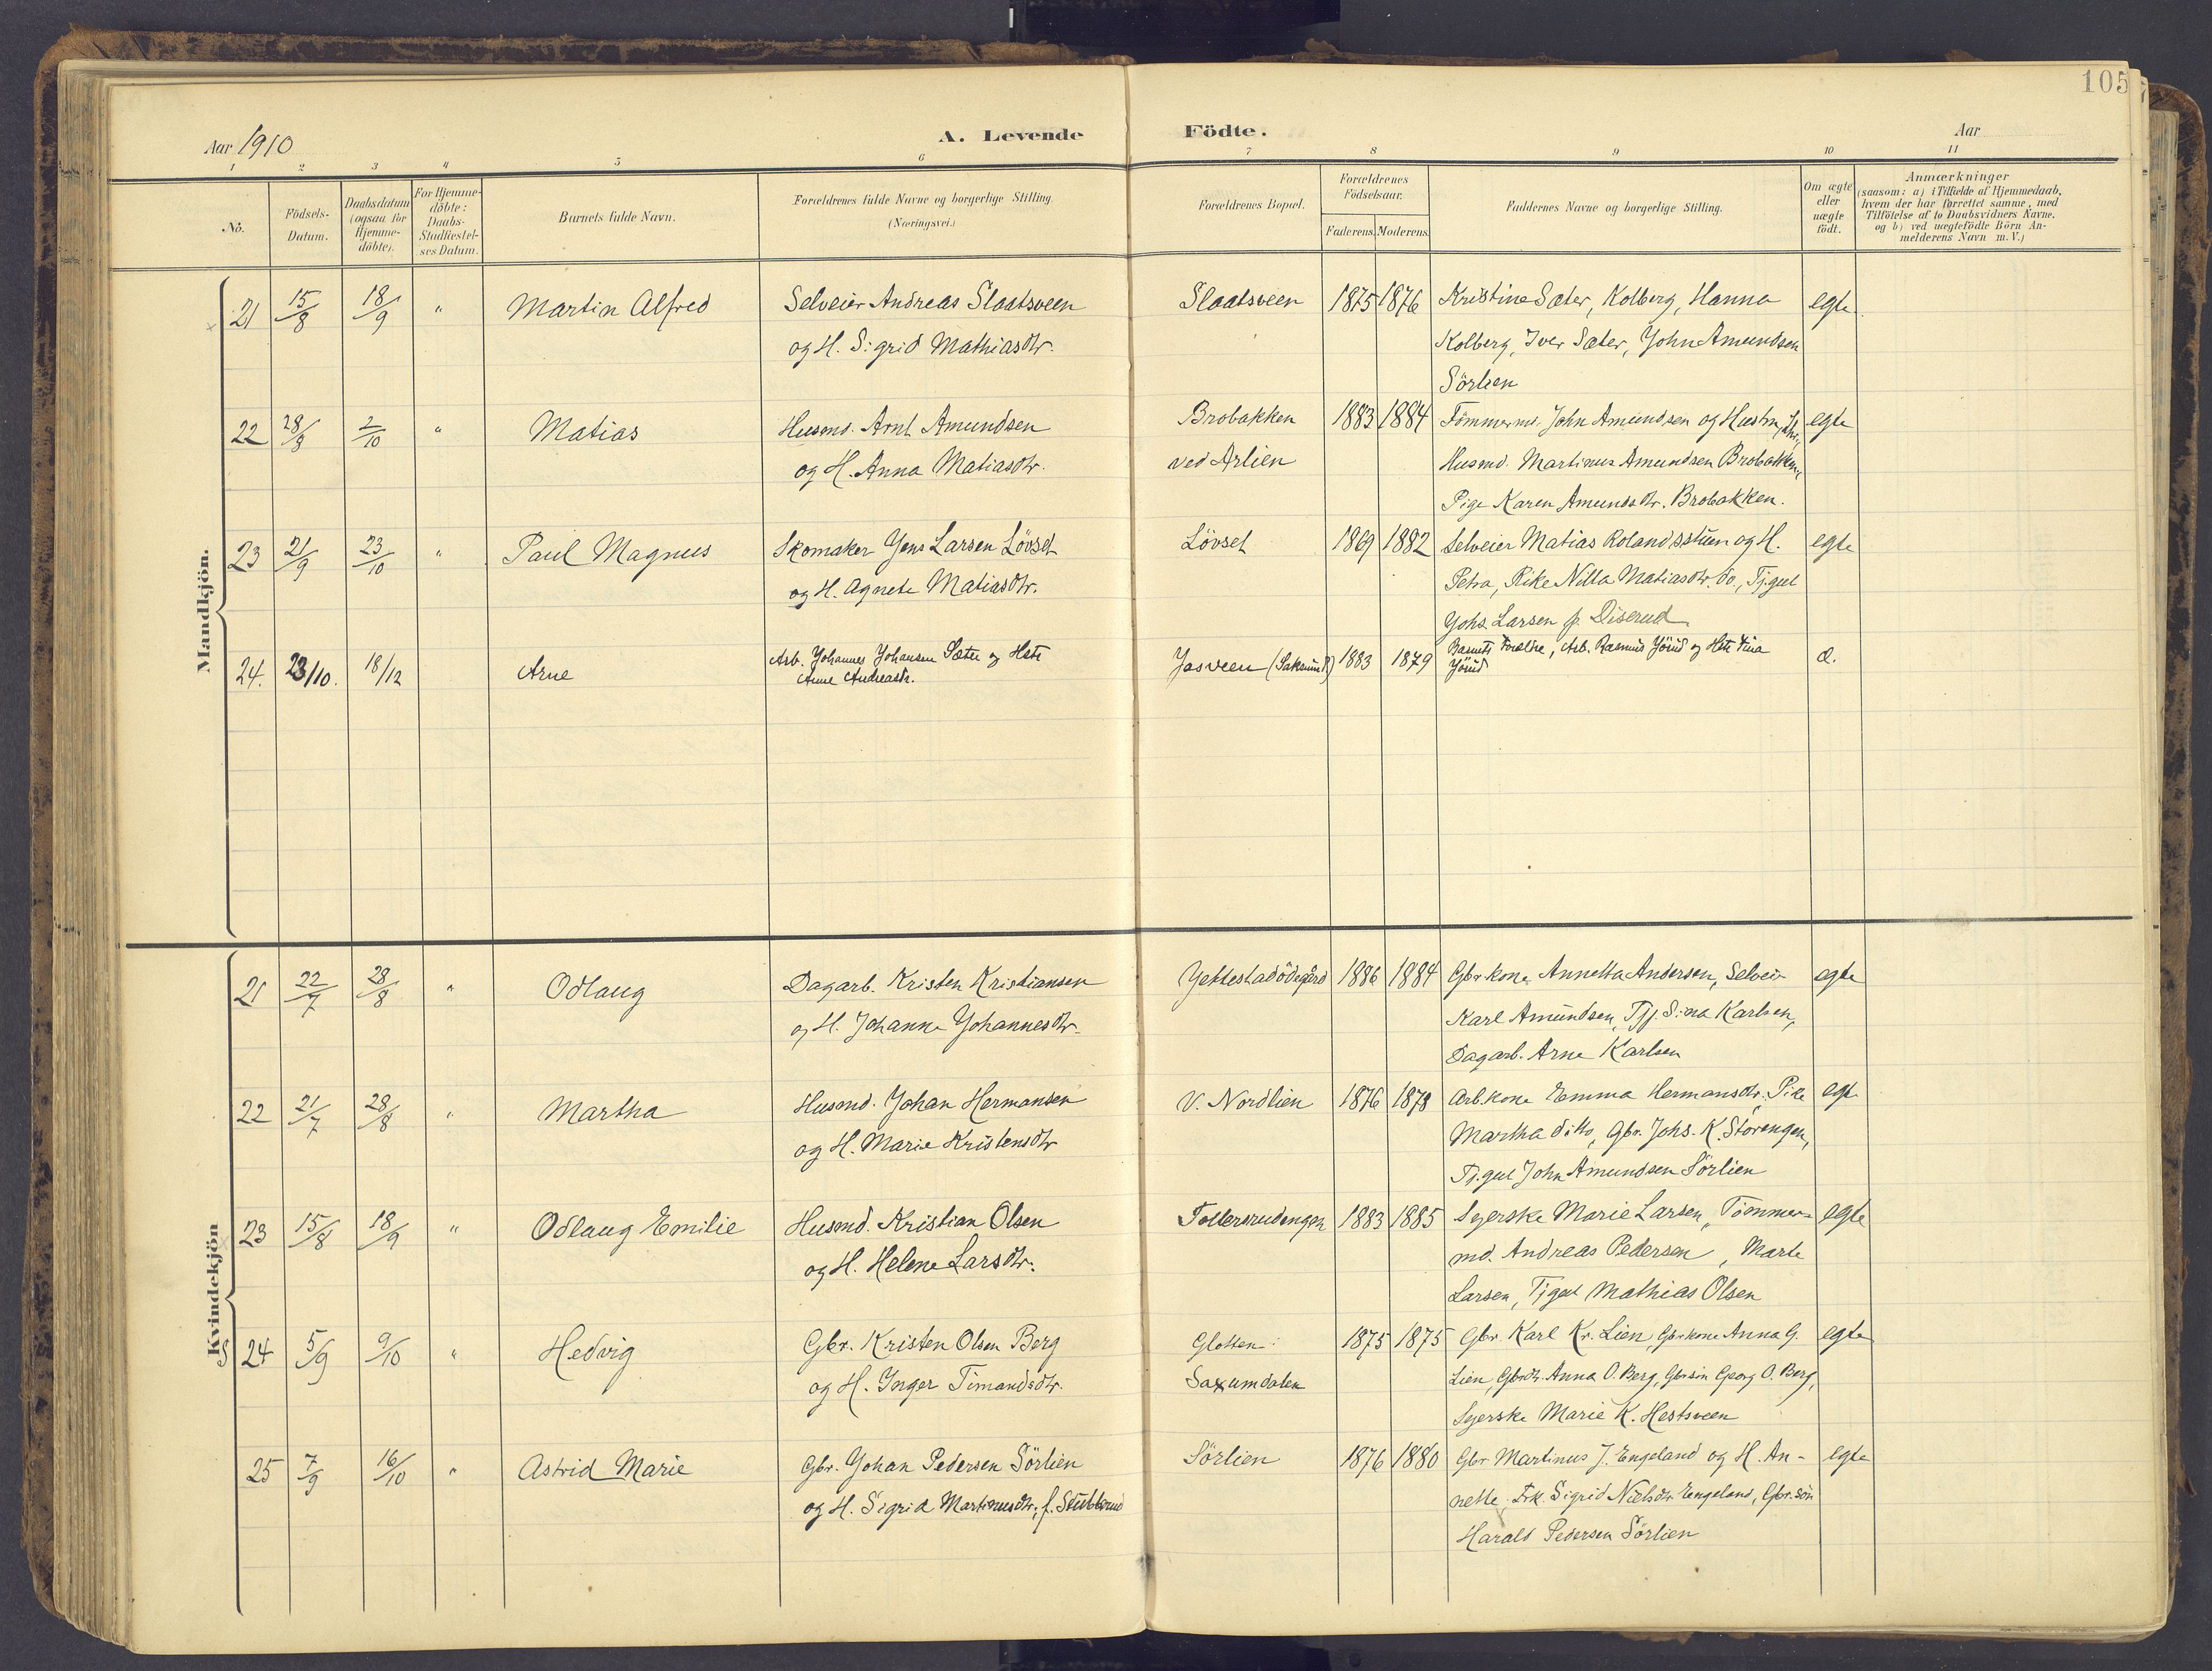 105
Aar 1910
A. Levende Födte.
Aar
1 2 3 4 5 6 7 8 9 10 11
No.
Födsels-Datum.
Daabsdatum (ogsaa for Hjemme-döbte).
For Hjemme-döbte: Daabs-Stadfæstel-ses Datum.
Barnets fulde Navn.
Forældrenes fulde Navne og borgerlige Stilling. (Næringsvei.)
Forældrenes Bopæl.
Forældrenes Födselsaar.
Faderens. Moderens.
Faddernes Navne og borgerlige Stilling.
Om ægte eller uægte födt.
Anmærkninger
(saasom: a) i Tilfælde af Hjemmedaab,
hvem der har forrettet samme, med
Tilföielse af to Daabsvidners Navne.
og b) ved uægtefödte Börn An-
melderens Navn m. V.)
Mandkjön.
21 15/8 18/9 " Martin Alfred Selveier Andreas Slaatsveen Slaatsveen 1875 1876 Kristine Sæter, Kolberg, Hanna egte
og H. Sigrid Mathiasdtr. Kolberg, Iver Sæter, John Amundsen
Sörlien
22 28/8 2/10 " Matias Husmd. Arnt Amundsen Brobakken 1883 1884 Tömmermd. John Amundsen og Hustru egte
og H. Anna Matiasdtr. ved Arlien Husmd. Martinus Amundsen Brobakken,
Pige Karen Amundsdtr. Brobakken.
23 21/9 23/10 " Paul Magnus Skomaker Jens Larsen Lövset Lövset 1869 1882 Selveier Matias Rolandsstuen og H. egte
og H. Agnete Matiasdtr. Petra, Pike Nilla Matiasdtr. do, Tj.gut
Johs. Larsen p. Diserud
24. 23/10. 18/12 Arne Arb. Johannes Johansen Sæter og Hstr Josveen (Saksumd.) 1883 1879 Barnets Forældre, Arb. Rasmus Jörud og Hstr Lina æ.
Anne Andreasdr. Jörud
Kvindekjön
21 22/7 28/8 " Odlaug Dagarb. Kristen Kristiansen Jettestadödegård 1886 1884 Gbr.kone Annetta Andersen, Selvei- egte
og H. Johanne Johannesdtr. Karl Amundsen, Tj.j. Sina Karlsen,
Dagarb. Arne Karlsen
22 21/7 28/8 " Martha Husmd. Johan Hermansen V. Nordlien 1876 1878 Arb.kone Emma Hermansdtr. Pike egte
og H. Marie Kristensdtr Martha ditto, Gbr. Johs. K. Storengen,
Tj.gut John Amundsen Sörlien
23 15/8 18/9 " Odlaug Emilie Husmd. Kristian Olsen Follerrudengen 1883 1885 Syerske Marie Larsen, Tömmer- egte
og H. Helene Larsdtr. md. Andreas Pedersen, Marte
Larsen, Tjgut Mathias Olsen
24 5/9 9/10 " Hedvig Gbr. Kristen Olsen Berg Glotten i 1875 1875 Gbr. Karl Kr. Lien, Gbrkone Anna G. egte
og H. Inger Timandsdtr. Saxumdalen Lien, Gbrdtr. Anna O. Berg, Gbrsön Georg O. Berg,
Syerske Marie K. Hestsveen
25 7/9 16/10 " Astrid Marie Gbr. Johan Pedersen Sörlien Sörlien 1876 1880 Gbr Martinus J. Engeland og H. An- egte
og H. Sigrid Martinusdtr, f. Stubberud nette, Frk. Sigrid Nielsdtr. Engeland, Gbr.sön
Harald Pedersen Sörlien